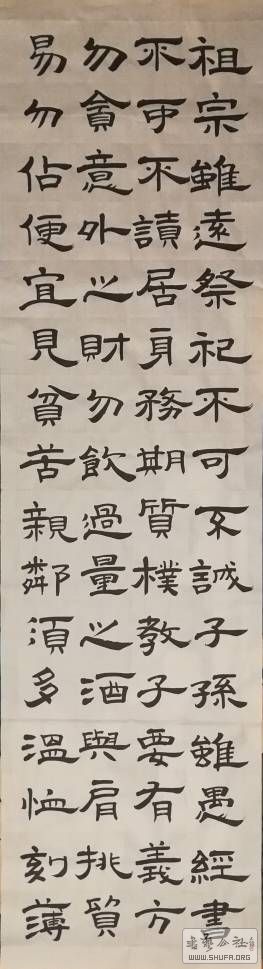 祖宗雖遠祭祀不可不誠子孫雖愚經書
不可不讀居身務期質樸教子要有義方
勿貪意外之財勿飲過量之酒與肩挑貿
易勿佔便宜見貧苦親鄰須多溫恤刻薄
書法公社
WWW.SHUFA.ORG